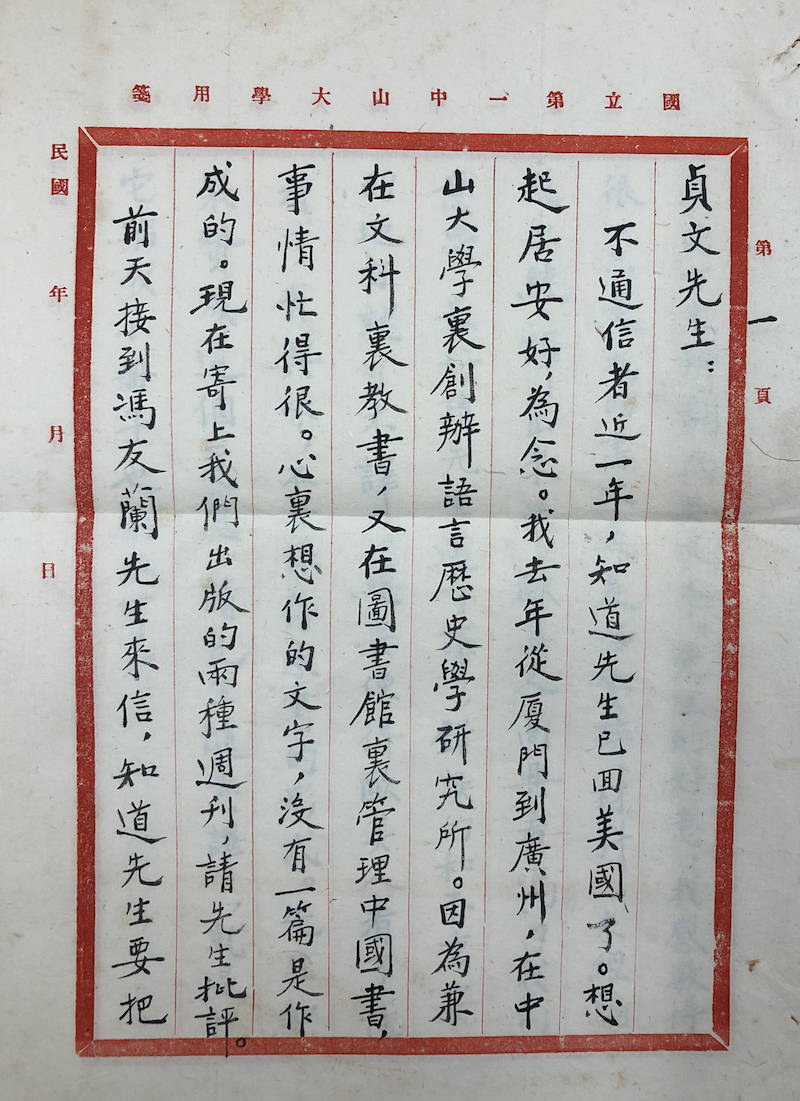 國立第一中山大學用箋
第一頁
貞文先生：
不通信者近一年，知道先生已回美國了。想
起居安好，為念。我去年從廈門到廣州，在中
山大學裏創辦語言歷史學研究所。因為兼
在文科裏教書，又在圖書館裏管理中國書，
事情忙得很。心裏想作的文字，沒有一篇是作
成的。現在寄上我們出版的兩種週刊，請先生批評。
前天接到馮友蘭先生來信，知道先生要把
民國 年 月 日